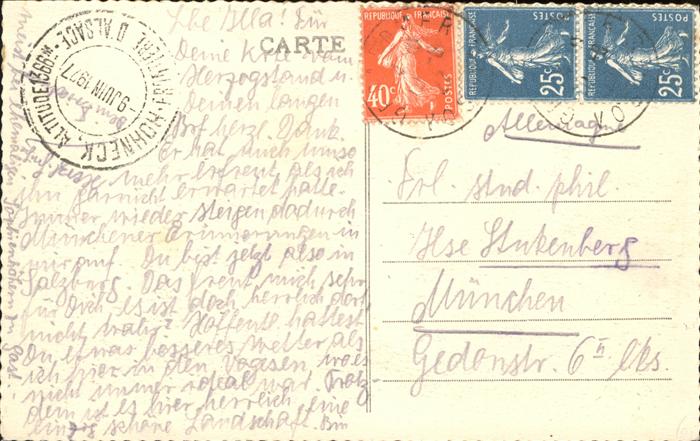 CARTE
HOHNECK, ALTITUDE 1366
D'ALSACE
9 JUIN 1927
Deine Krte vom
Herzogstand u.
deinen langen
Brf herzl. Dank.
Er hat mich umso
mehr erfreut, als ich
ihn garnicht erwartet hatte.
Immer wieder steigen dadurch
Münchener Erinnerungen in
mir auf. Du bist jetzt also in
Salzburg. Das freut mich sehr
für Dich, es ist doch herrlich dort
nicht wahr? Hoffentl. hattest
Du etwas besseres Wetter als
ich hier in den Vogesen, wo es
nicht immer ideal war. Trotz-
dem ist es hier herrlich, eine
schöne Landschaft. Bin
RÉPUBLIQUE FRANÇAISE
POSTES
40c
RÉPUBLIQUE FRANÇAISE
POSTES
25c
RÉPUBLIQUE FRANÇAISE
POSTES
25c
Allemagne
Frl. stud. phil.
Ilse Stukenberg
München
Gedonstr. 6 lks.